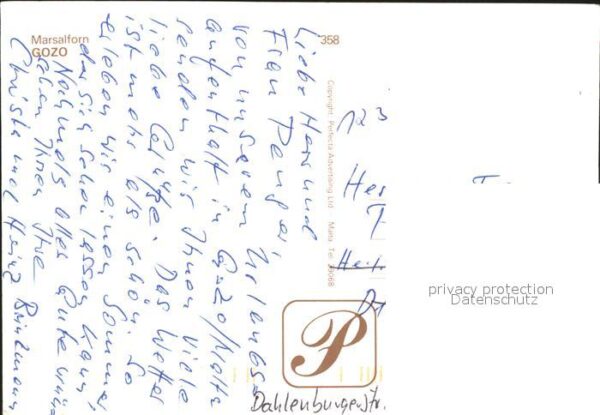 Marsalforn
GOZO
358
Liebe Herr und
Frau Penger,
von unserem Urlaubs-
aufenthalt in Gozo/Malta
senden wir Ihnen viele
liebe Grüße. Das Wetter
ist mehr als schön. So
erleben wir einen Sommer,
der sich sehen lassen kann,
Nochmals alles Gute wünschen
Ihnen Ihre
Christa und Heinz
Copyright Perfecta Advertising Ltd Malta Tel
123
Her
T
Hei
P
Dahlenburgerstr.
privacy protection
Datenschutz